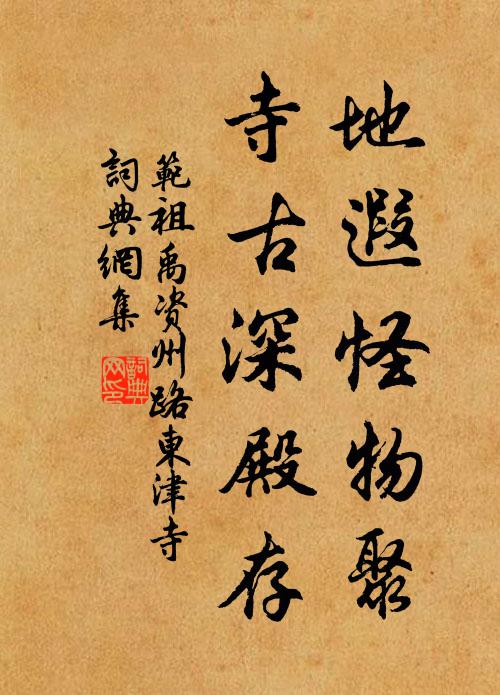 地遐怪物聚
寺古深殿存
範祖禹资州路東津寺
詞典網集
詞典
网印